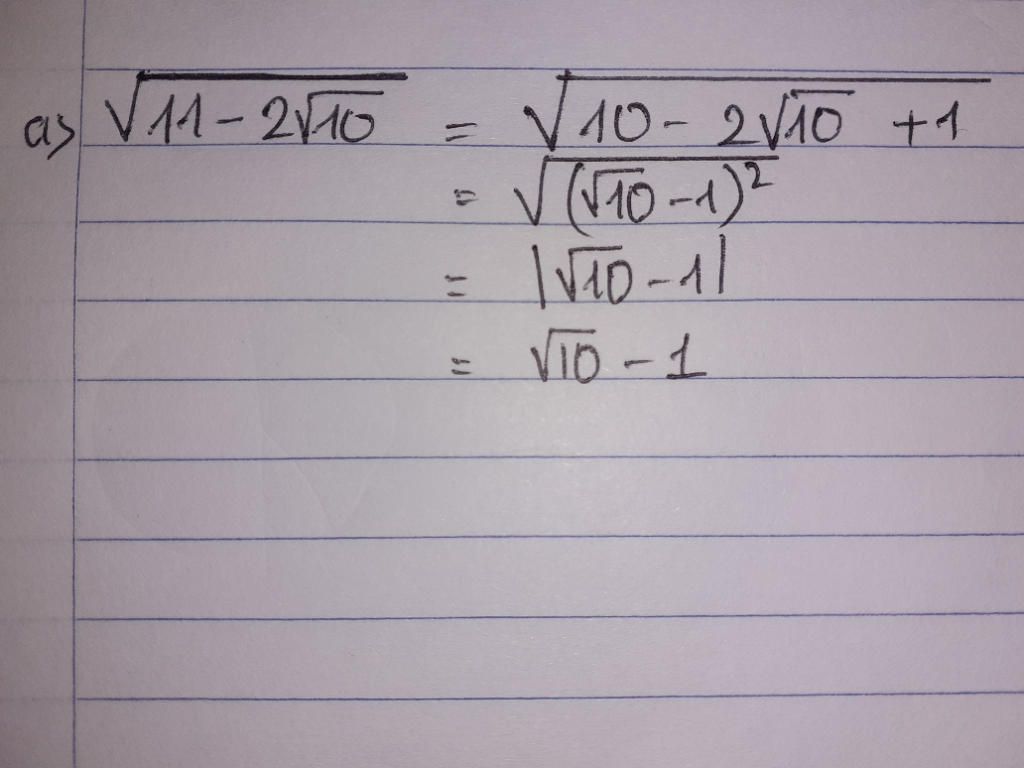 a) √(11 - 2√10) = √(10 - 2√10 + 1)
= √((√10 - 1)²)
= |√10 - 1|
= √10 - 1